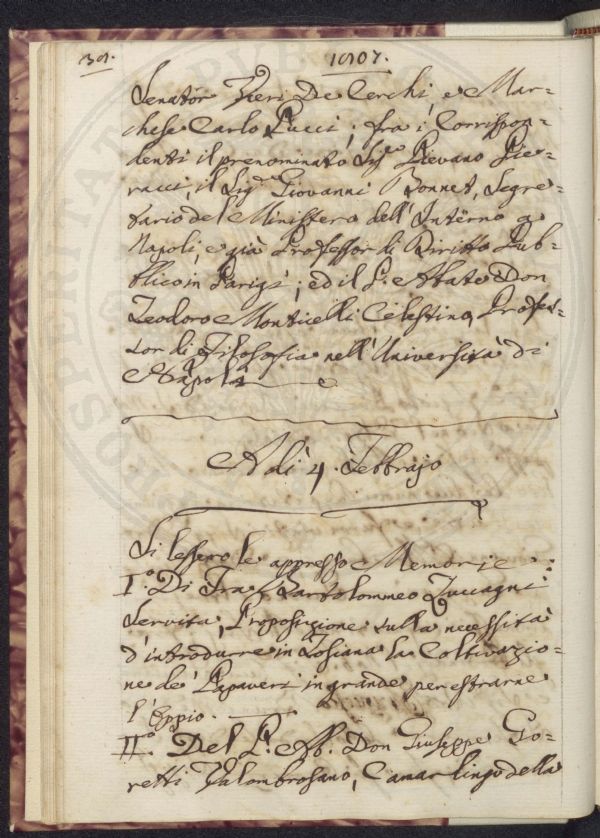 30.
1807.
Senator Vieri De Cerchi, e Mar-
chese Carlo Pucci; fra i Corrispon-
denti il prenominato Sig.e Pievano Pie-
racci, il Sig.e Giovanni Bonnet, Segre-
tario del Ministero dell'Interno a
Napoli, e già Professor di Diritto Pub-
blico in Parigi; ed il P. Abate Don
Teodoro Monticelli Celestino, Profes-
sor di Filosofia nell'Università di
Napoli
A dì 4. Febbrajo
Si lessero le appresso Memorie:
I.° Di Fra Bartolommeo Zuccagni
Servita, Proposizione sulla necessità
d'introdurre in Toscana la Coltivazio-
ne de' Papaveri in grande per estrarne
l'Oppio.
II.° Del P. Ab. Don Giuseppe Go-
retti Valombrosano, Camarlingo della